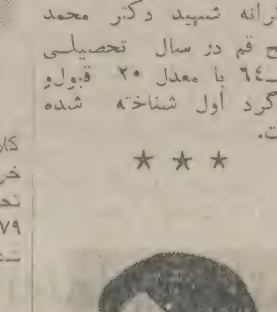 رانه شهید دکتر محمد
ح قم در سال تحصیلی
ـ٦٤ با معدل ٢٠ قبول و
گرد اول شناخته شده
ت.
* * *
کلا
خر
تحـ
٧٩